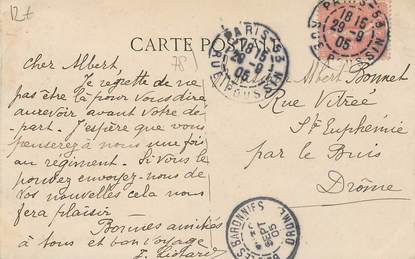 12€
78
CARTE POSTALE
PARIS-53
18 15
29 -9
05
RUE POUSSIN
PARIS-53
18 15
29 -9
05
Cher Albert
Je regrette de ne
pas être là pour vous dire
aurevoir avant votre dé-
part. J'espère que vous
penserez à nous une fois
au régiment. Si vous le
pouvez envoyez-nous de
vos nouvelles cela nous
fera plaisir.
Bonnes amitiés
à tous et bon voyage
Albert Bonnet
Rue Vitrée
Ste Euphémie
par le Buis
Drôme
BARONNIES
DROME
SEPT
05